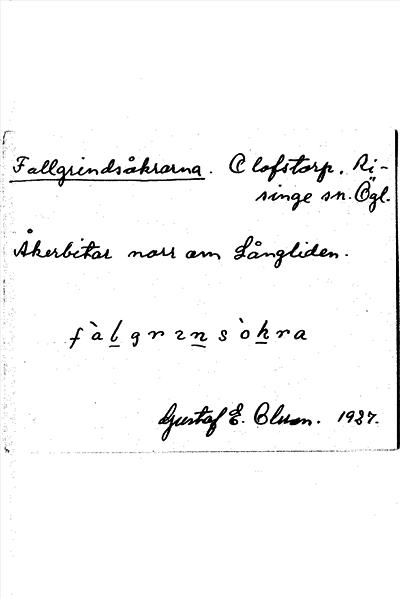 Fallgrindsåkrarna. Olofstorp. Ri-
singe sn. Ögl.
Åkerbitar norr om Långliden.
fàlgrɪnsòkra
Gustaf E. 1927.